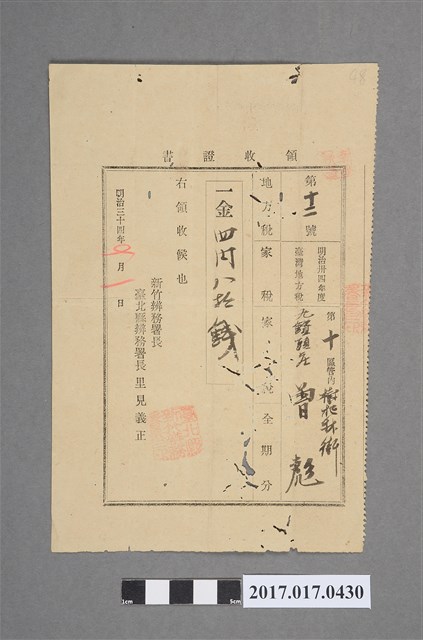 98
領收證書
第十二號
明治卅四年度
臺灣地方稅
第十區管內樹杞林街
曾彪
地方稅家稅家稅全期分
一金四円八拾錢
右領收候也
明治三十四年五月一日
新竹辨務署長
臺北縣辨務署長里見義正
1cm
5cm
2017.017.0430